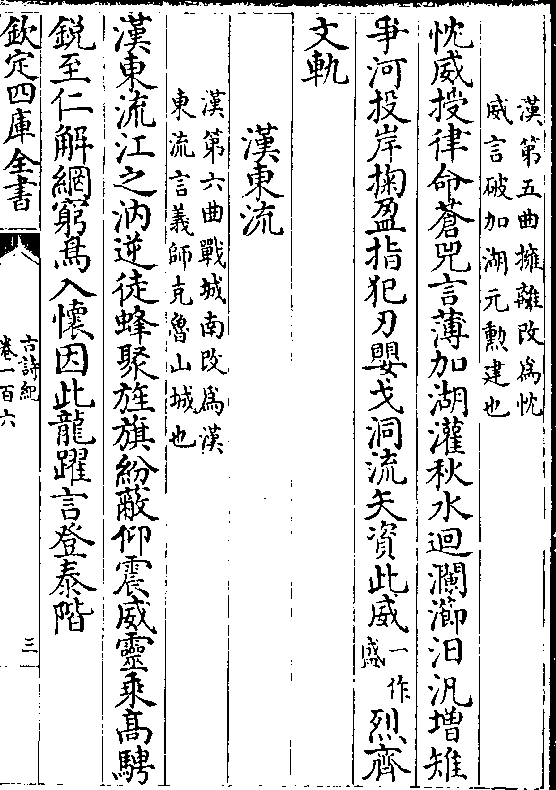 漢第五曲擁離改為忱
威言破加湖元勲建也
忱威授律命蒼兕言薄加湖灌秋水迴瀾瀄汨汎增雉
爭河投岸掬盈指犯刃嬰戈洞流矢資此威一作盛烈齊
文軌
漢東流
漢第六曲戰城南改為漢
東流言義師克魯山城也
漢東流江之汭逆徒蜂聚旌旗紛蔽仰震威靈乘高騁
鋭至仁解網窮鳥入懷因此龍躍言登泰階
欽定四庫全書
古詩紀
卷一百六
三